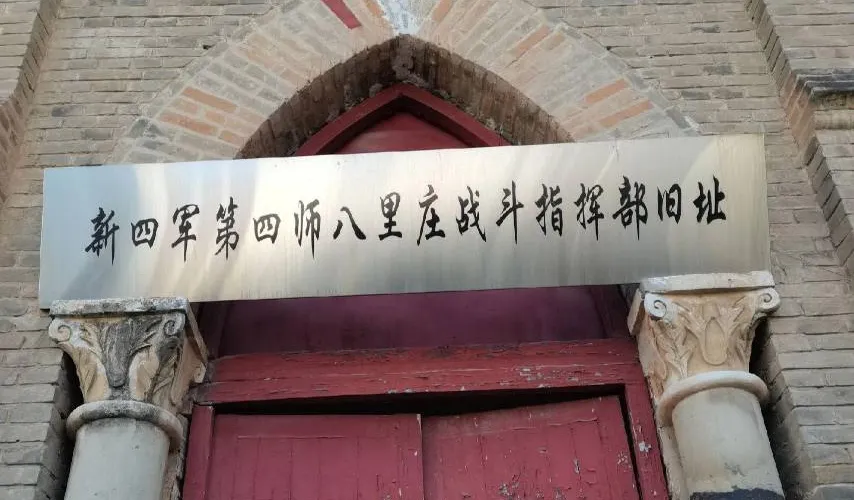 新四军第四师八里庄战斗指挥部旧址